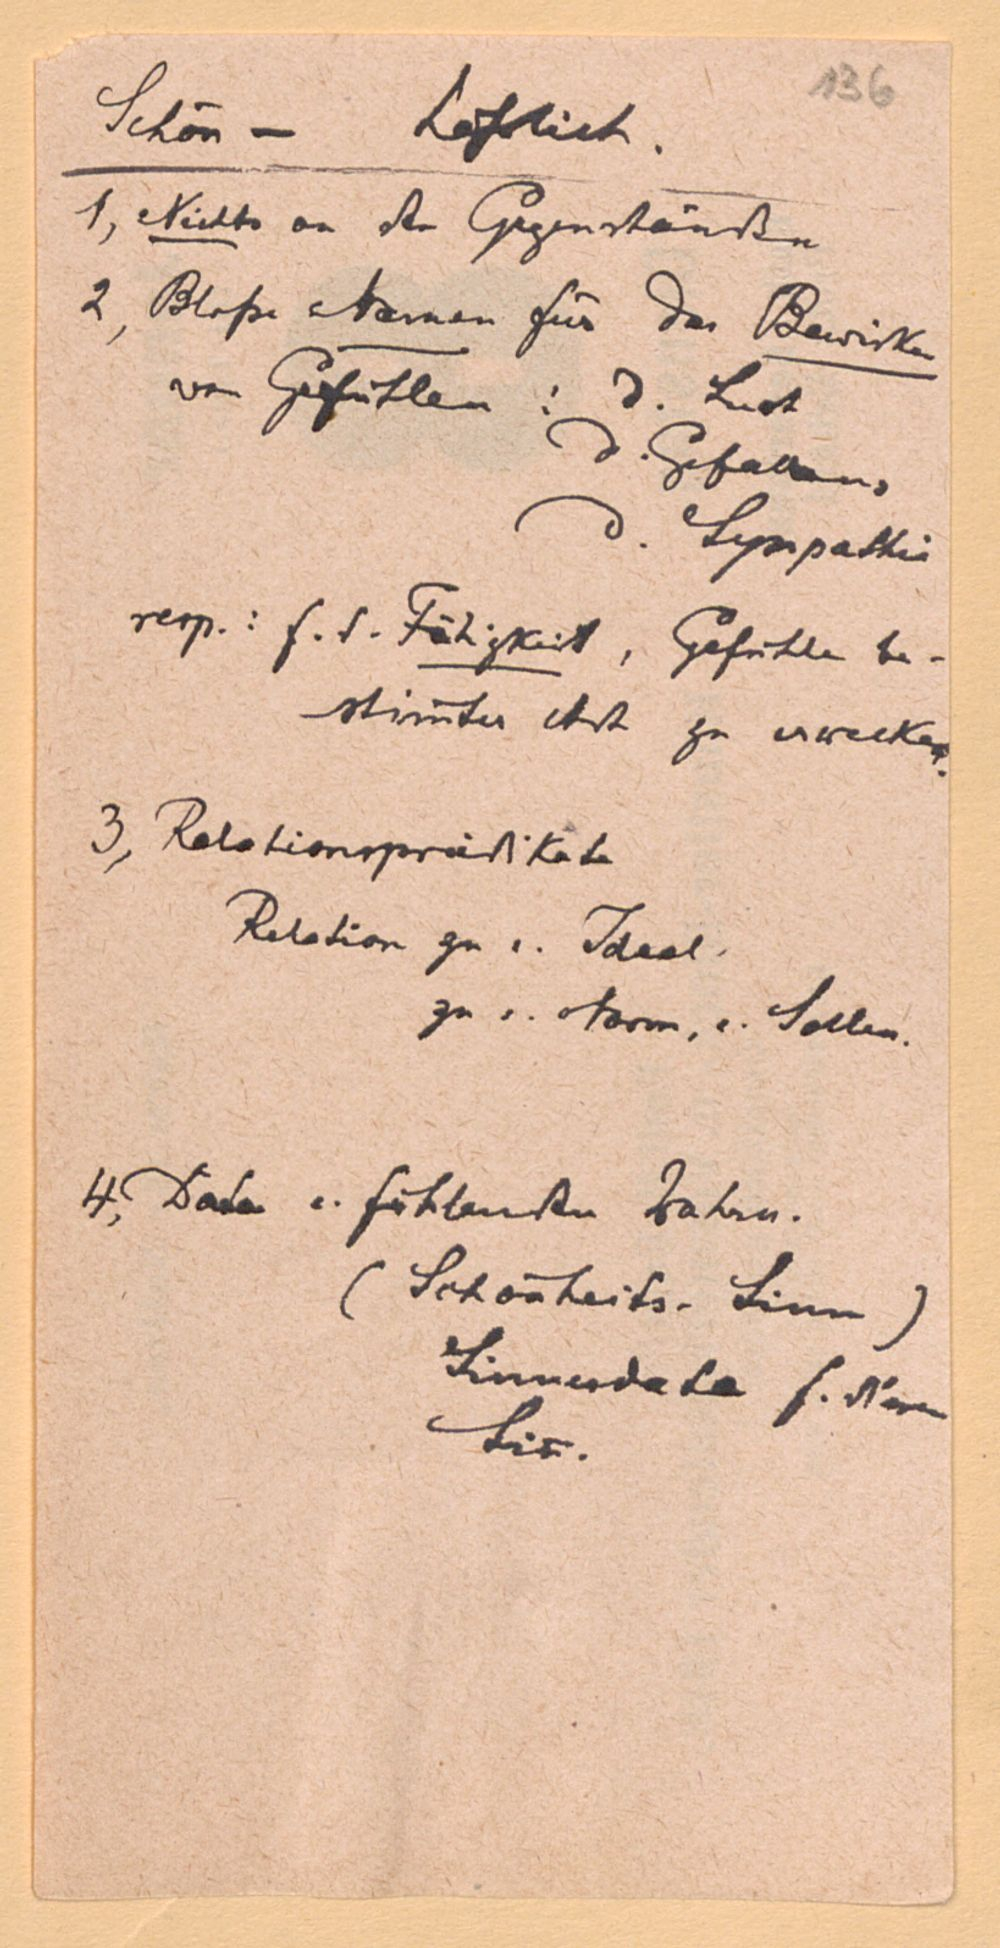 136
Schön – häßlich.
1, Nichts an den Gegenständen
2, Bloße Namen für das Bewirken
von Gefühlen: d. Lust
d. Gefallens
d. Sympathie
resp.: f. d. Fähigkeit, Gefühle be-
stim̄ter Art zu erwecken.
3, Relationsprädikate
Relation zu e. Ideal.
zu e. Norm, e. Sollen.
4, Data e. fühlenden Wahrn.
(Schönheits-Sinn)
Sinnesdata f.